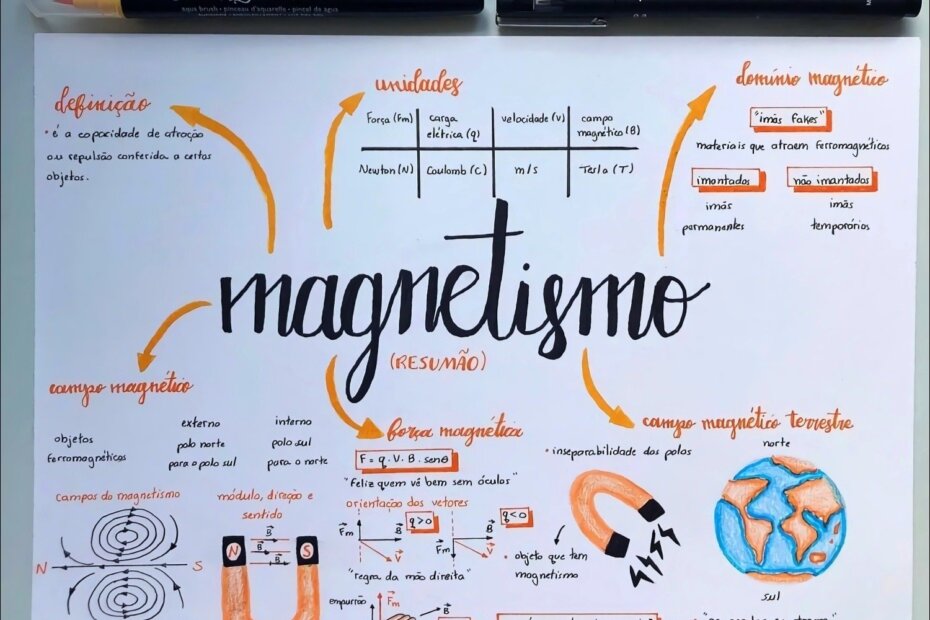 aqua brush • pinceau d'aquarelle • pincel de água
definição
• é a capacidade de atração
ou repulsão conferida a certos
objetos.
unidades
Força (Fm) carga elétrica (q) velocidade (V) campo magnético (B)
Newton (N) Coulomb (C) m/s Tesla (T)
domínio magnético
"imãs fakes"
materiais que atraem ferromagnéticos
imantados não imantados
imãs
permanentes
imãs
temporários
magnetismo
(RESUMÃO)
campo magnético
objetos
ferromagnéticos
externo
polo norte
para o polo sul
interno
polo sul
para o norte
campos do magnetismo
N S
módulo, direção e
sentido
N S
B
B
B
força magnética
F = q . V . B . senθ
"Feliz quem vê bem sem óculos"
orientação dos vetores
Fm B V q>0
Fm B V q<0
"regra da mão direita"
empurrão
Fm
B
campo magnético terrestre
• inseparabilidade dos polos
• objeto que tem
magnetismo
norte
sul